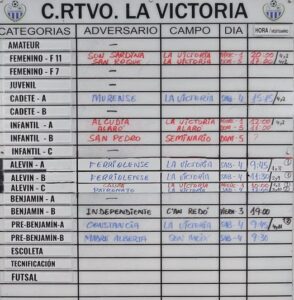 C.RTVO. LA VICTORIA
CATEGORIAS ADVERSARIO CAMPO DIA HORA/VESTUARIO
AMATEUR —
FEMENINO - F 11 SON SARDINA LA VICTORIA 20:00
SAN ROQUE LA VICTORIA DOM-5
FEMENINO - F 7 —
JUVENIL —
CADETE - A MURENSE LA VICTORIA SAB-4 15:15
CADETE - B —
INFANTIL - A ALCUDIA LA VICTORIA
ALARO ALARO DOM-5
INFANTIL - B SAN PEDRO SEMINARIO DOM-5 ?
INFANTIL - C —
ALEVIN - A FERRIOLENSE LA VICTORIA SAB-4 9:45
ALEVIN - B FERRIOLENSE LA VICTORIA SAB-4 11:30
ALEVIN - C LA VICTORIA
PATRONATO LA VICTORIA SAB-4
BENJAMIN - A —
BENJAMIN - B INDEPENDIENTE C'AN REDÓ 19:00
PRE-BENJAMIN - A CONSTANCIA LA VICTORIA SAB-4 9:45
PRE-BENJAMIN - B MADRE ALBERTA SAB-4 9:30
ESCOLETA
TECNIFICACIÓN
FUTSAL